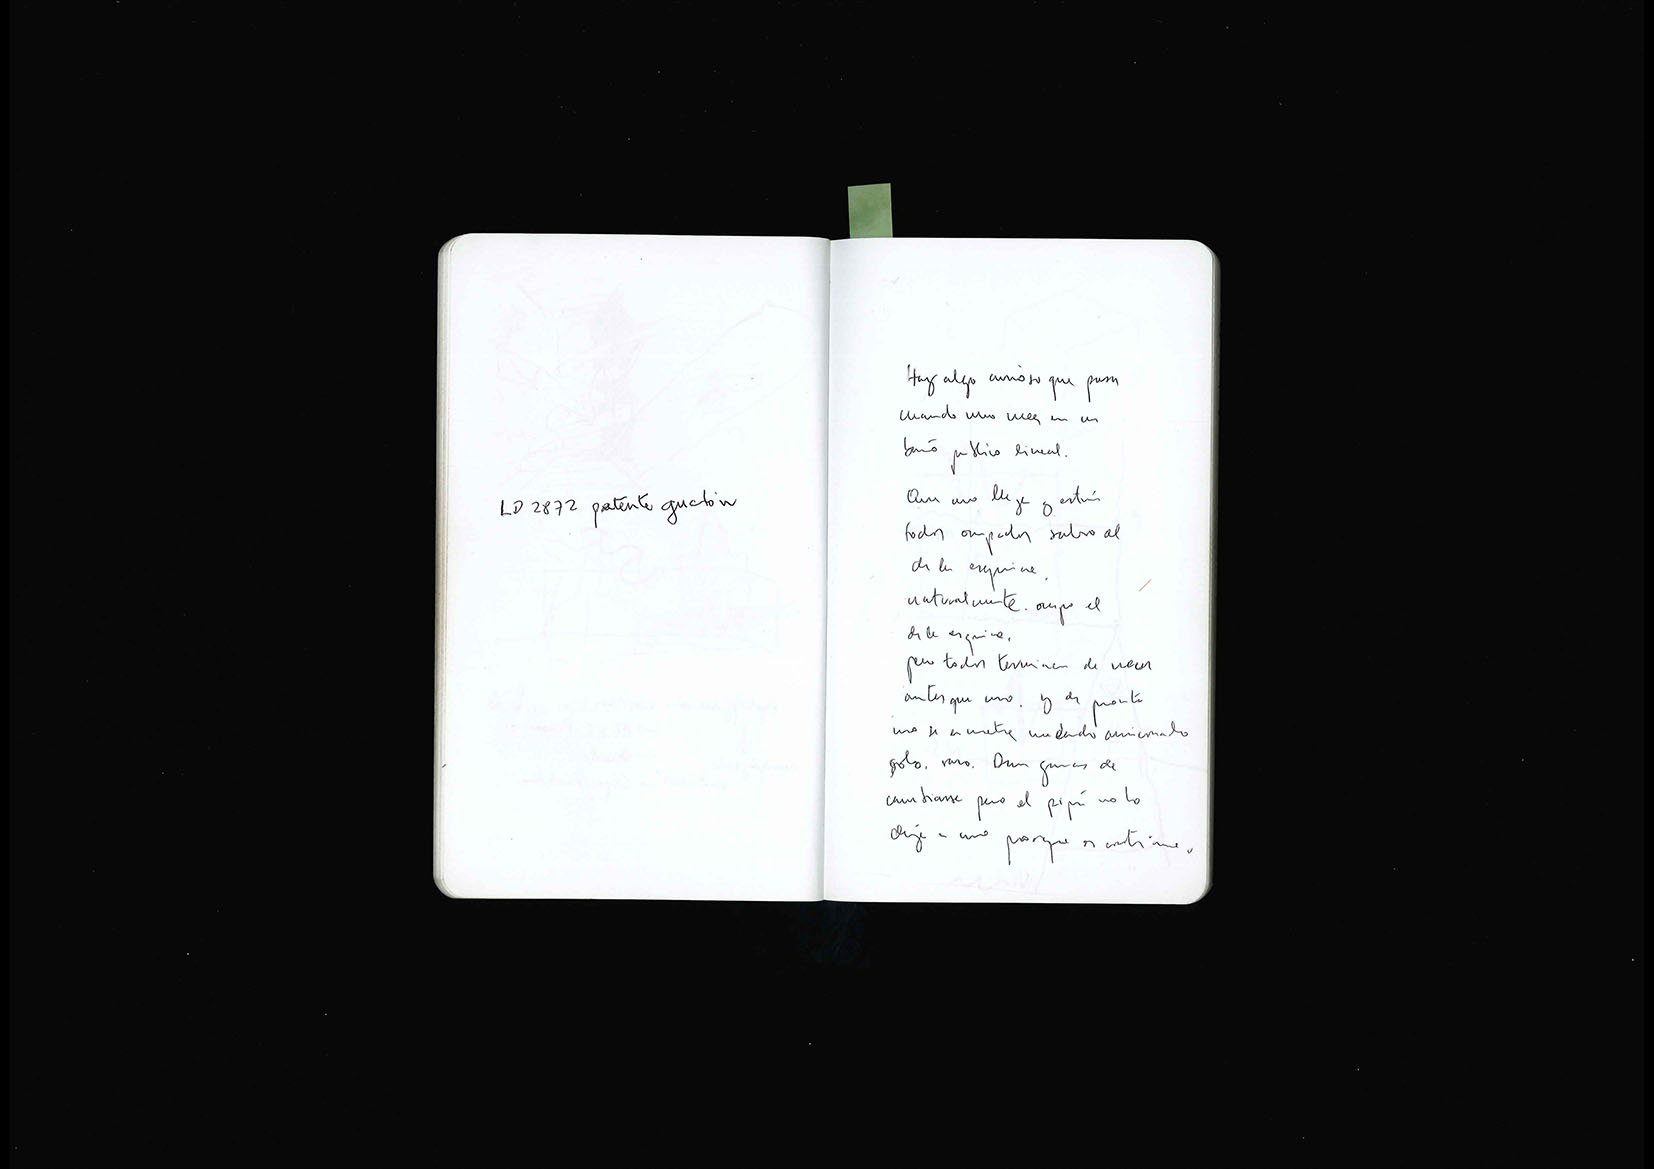 LD 2872 patente guatón
Hay algo curioso que pasa
cuando uno mea en un
baño público lineal.
Que uno llega y están
todos ocupados salvo el
de la esquina,
naturalmente. ocupo el
de la esquina,
pero todos terminan de mear
antes que uno. y de pronto
uno se encuentra meando arrinconado
solo. raro. Dan ganas de
cambiarse pero el pipí no lo
deja a uno porque es continuo.